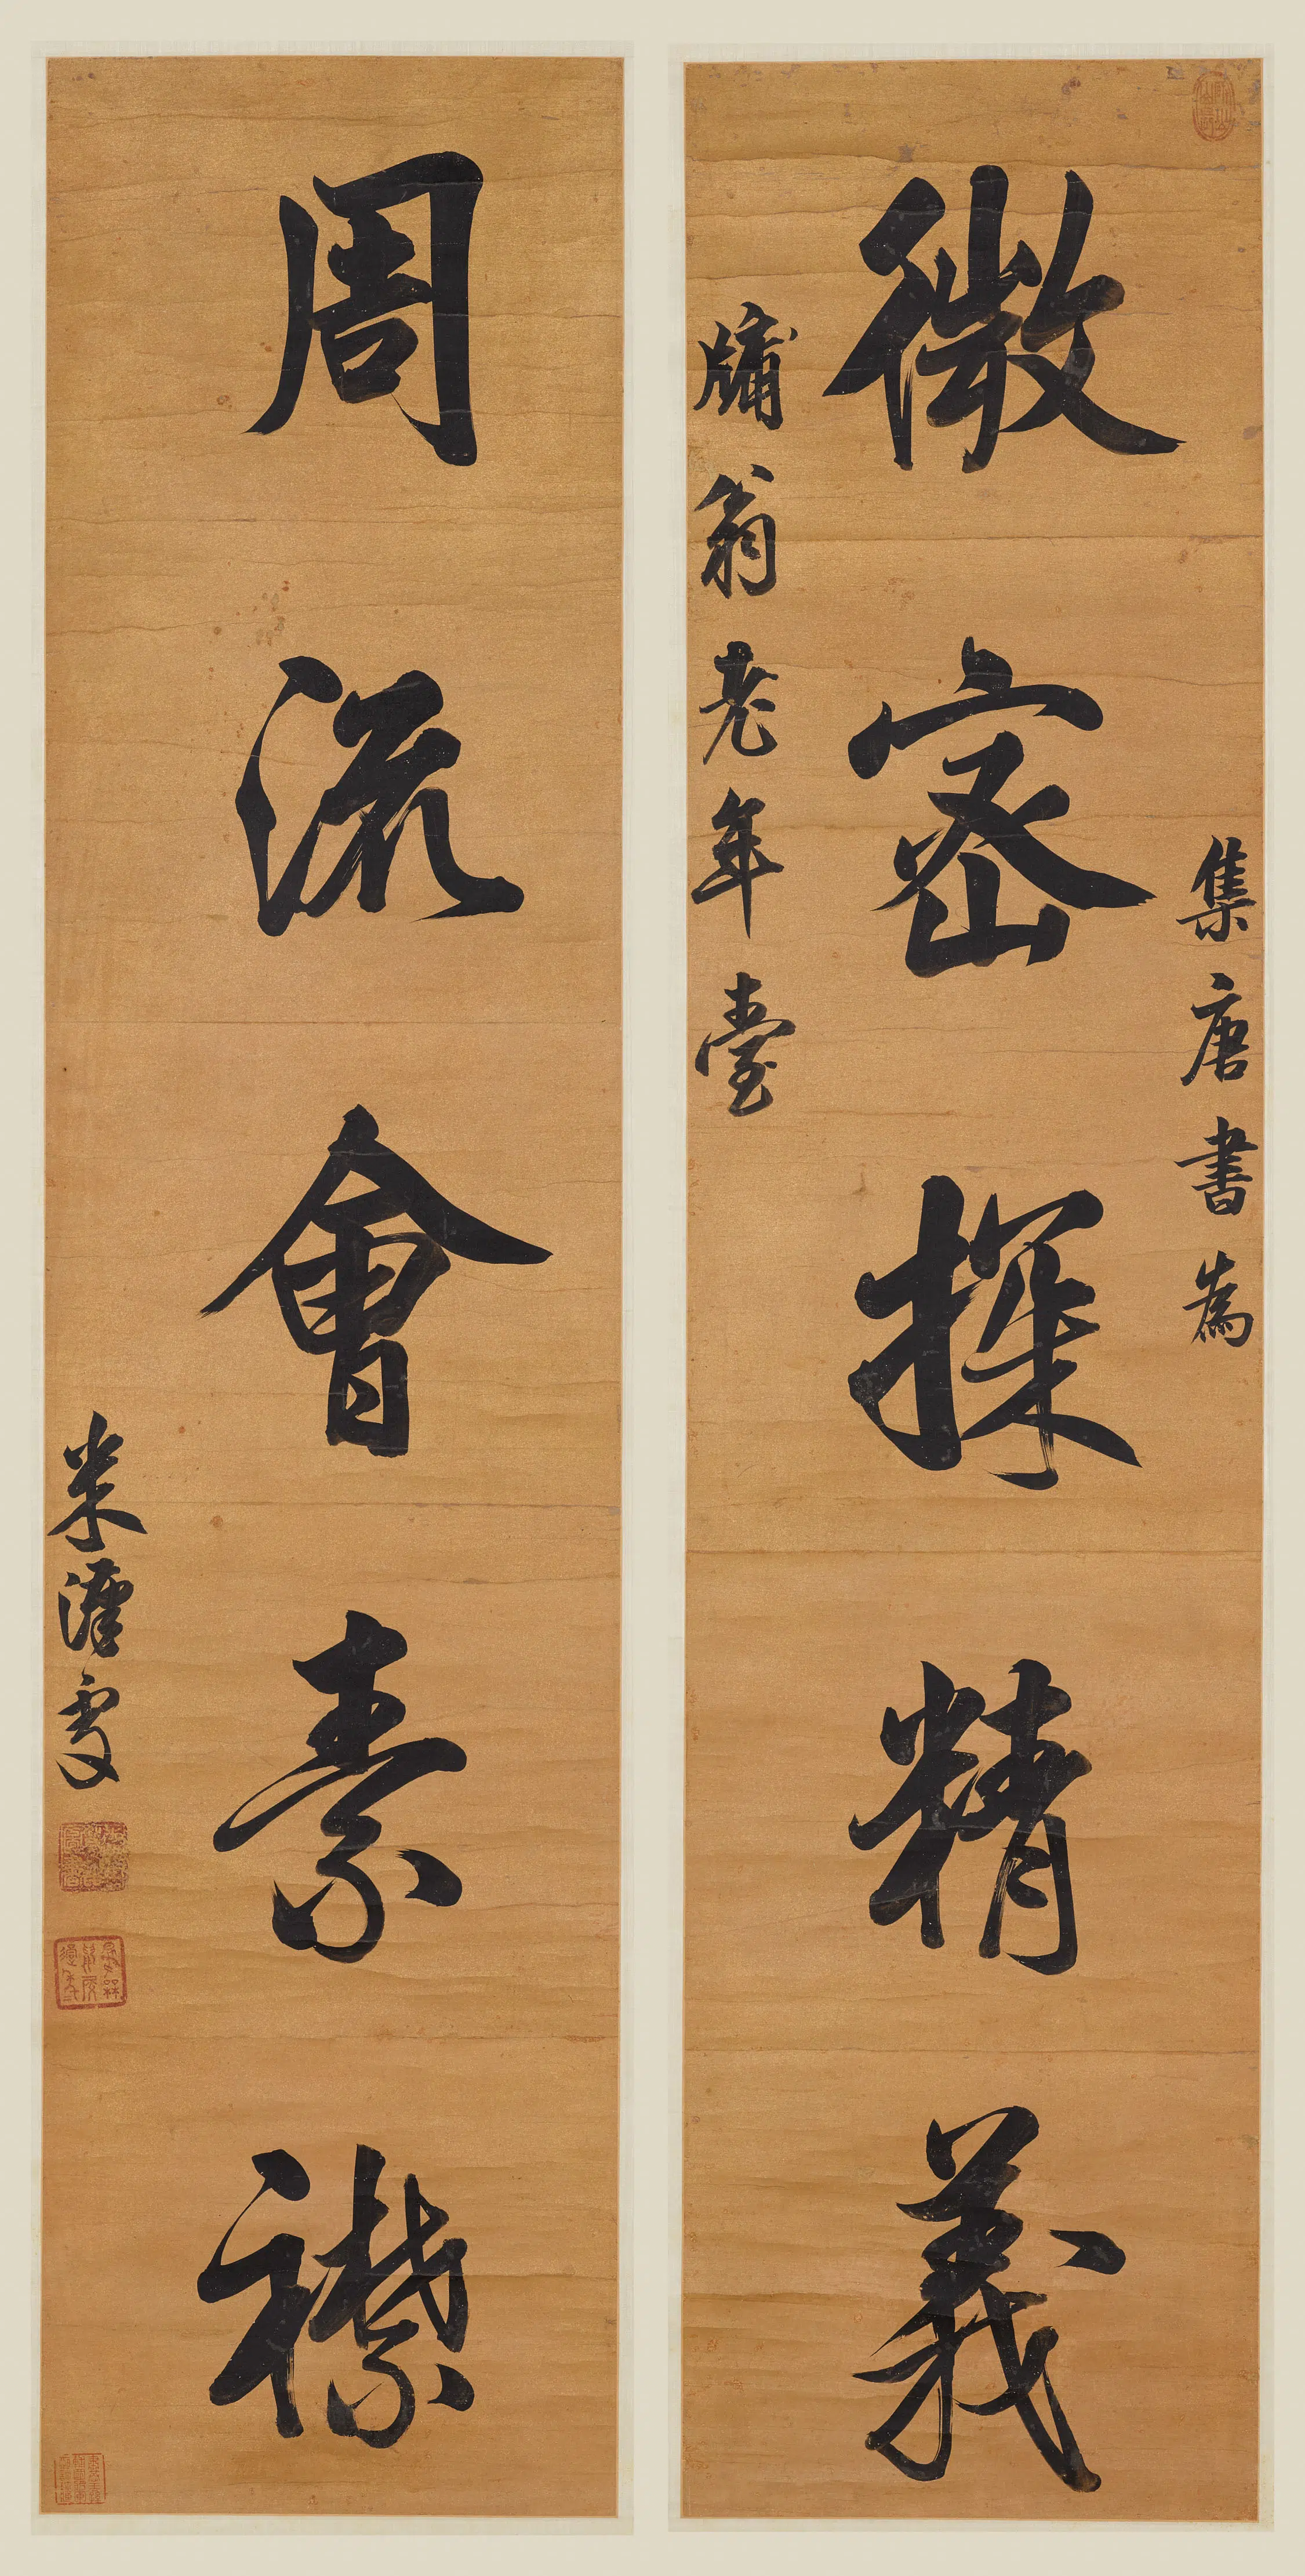 集唐書為
微密探精義
牖翁老年臺
周流會素襟
米漢雯